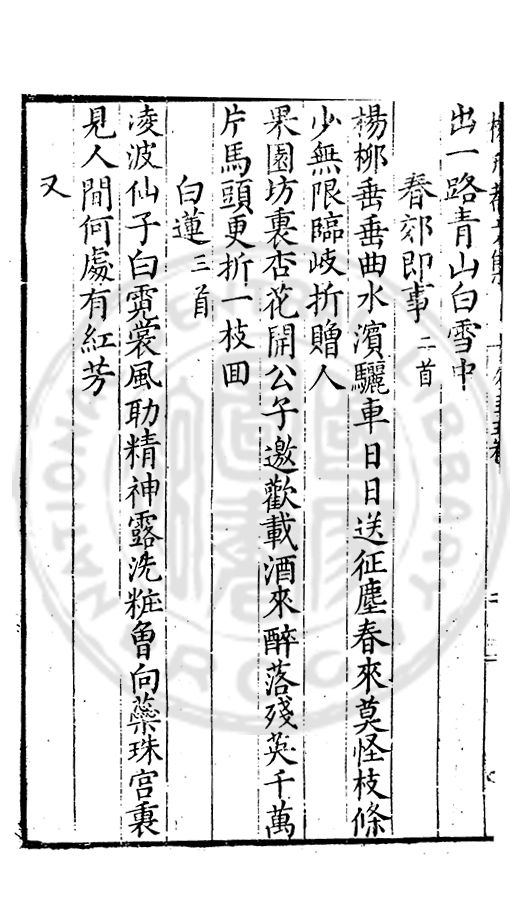 出一路青山白雪中
春郊即事二首
楊柳垂垂曲水濱驪車日日送征塵春來莫怪枝條
少無限臨岐折贈人
果園坊裏杏花開公子邀歡載酒來醉落殘英千萬
片馬頭更折一枝囬
白蓮三首
凌波仙子白霓裳風助精神露洗粧曾向蘂珠宮裏
見人間何處有紅芳
又